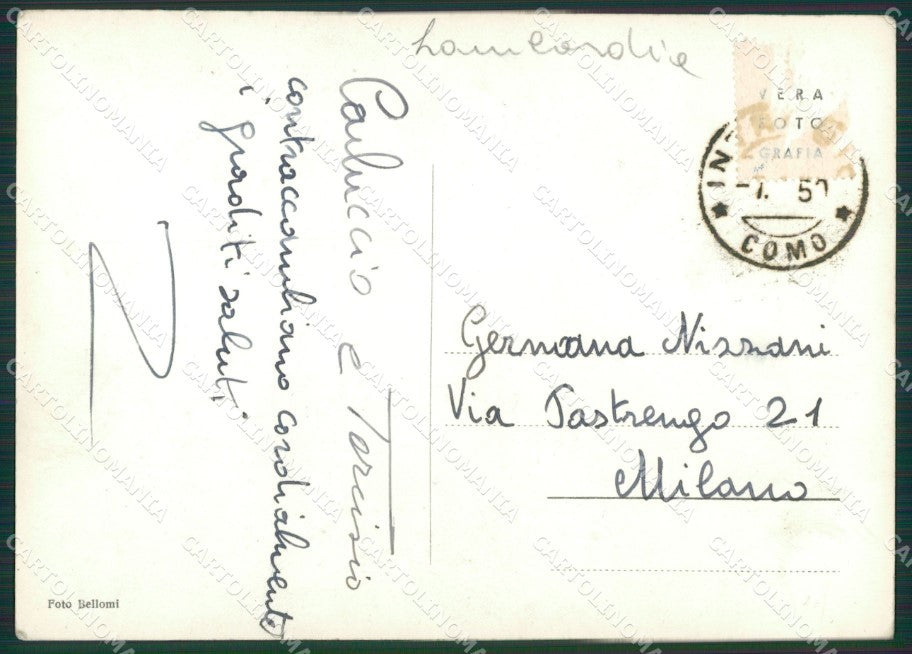 Lombardia
VERA
FOTO
GRAFIA
INT
7. 50
COMO
Carluccio e Tarcisio
contraccambiano cordialmente
i graditi saluti
Germana Nissani
Via Pastrengo 21
Milano
Foto Bellomi
CARTOLINOMANIA